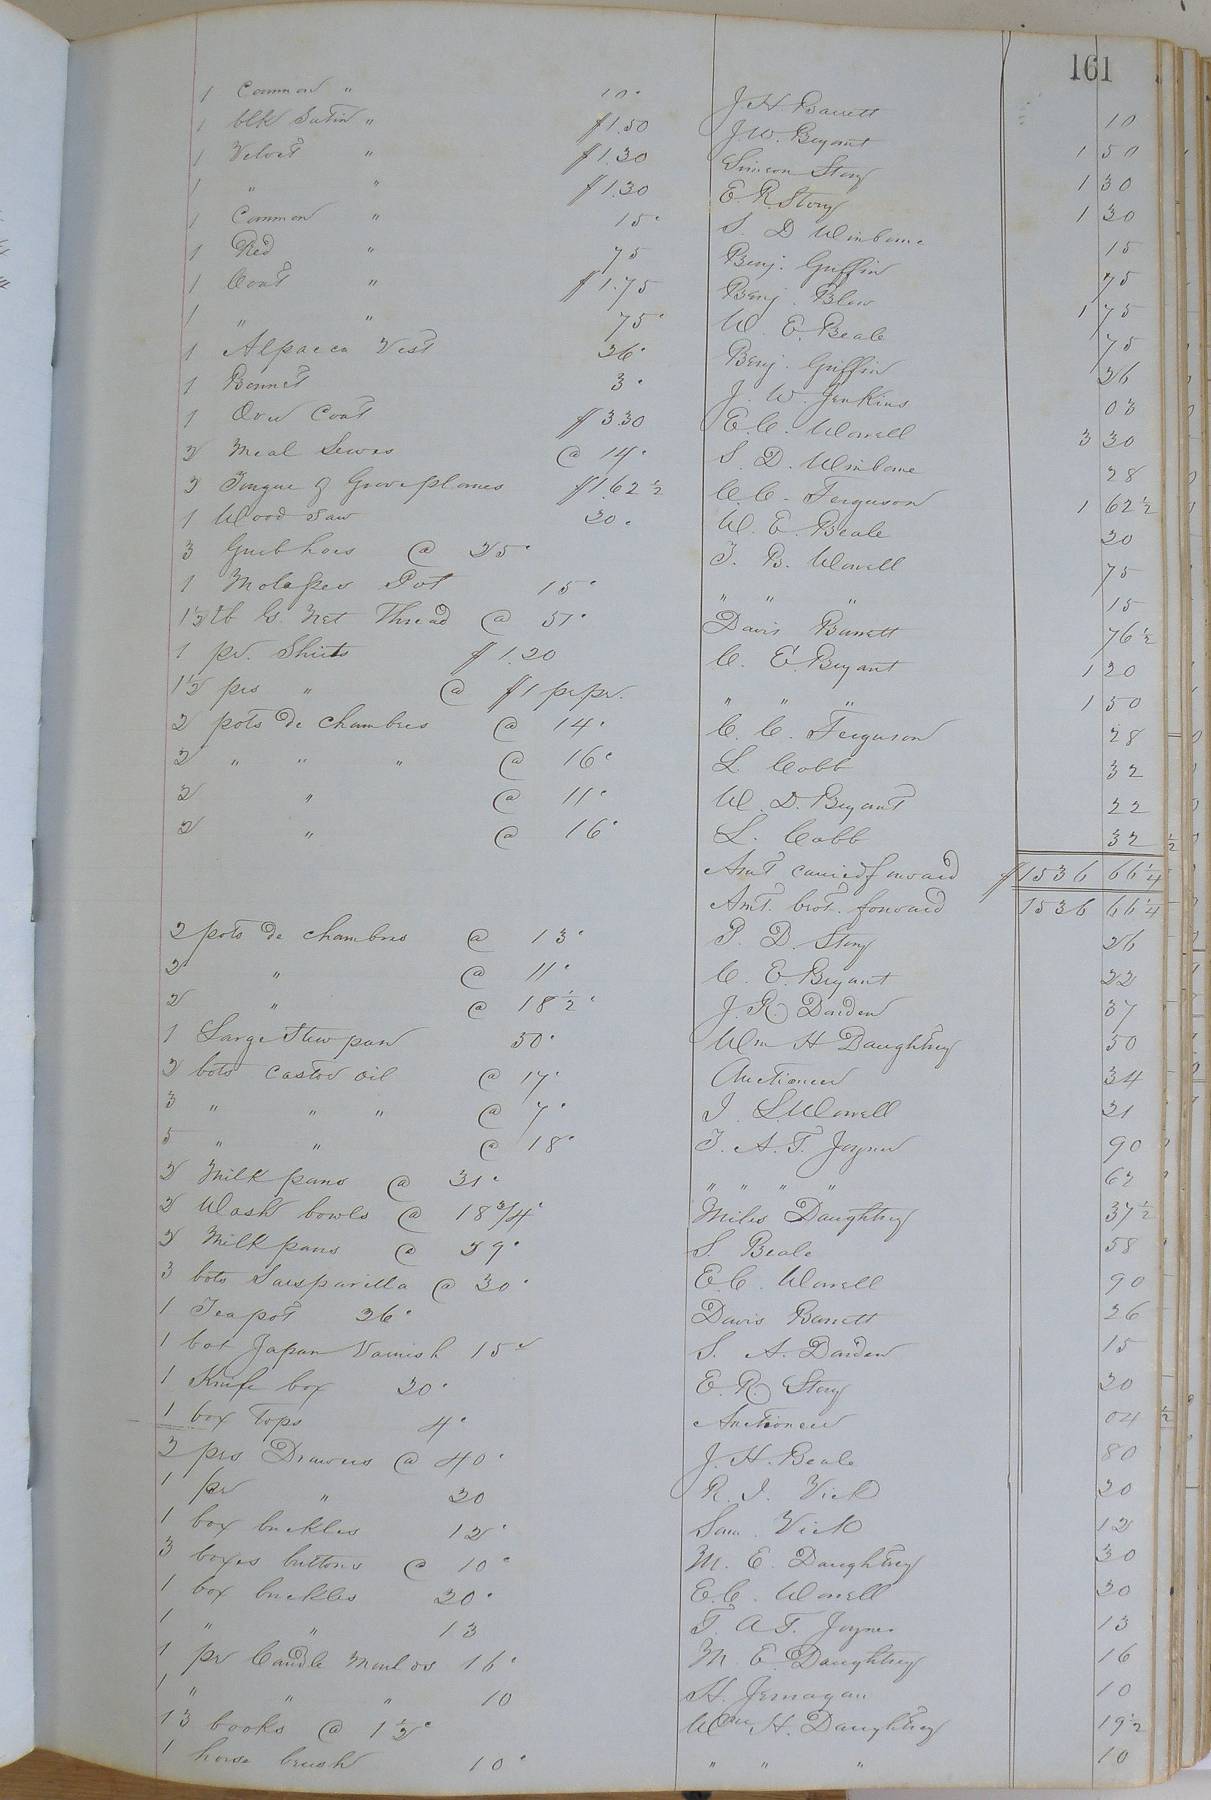 161
1 Common " 10c J H Barrett 10
1 blk Satin " $1.50 J. W. Bryant 1 50
1 Velvet " $1.30 Simeon Story 1 30
1 " " $1.30 E. R. Story 1 30
1 Common " 15c S. D Winborne 15
1 Red " 75 Benj. Griffin 75
1 Coat " $1.75 Benj. Blow 1 75
1 " " 75c W. E. Beale 75
1 Alpacca Vest 26c Benj. Griffin 26
1 Bonnet 3c J. W. Jenkins 03
1 Over Coat $3.30 E. C. Worrell 3 30
2 Meal Seives @ 14c S. D. Winborne 28
2 Tongue & Grove planes $1.62 1/2 C. C. Ferguson 1 62 1/2
1 Wood Saw 20c W. E. Beale 20
3 Grub hoes @ 25c T. B. Worrell 75
1 Molasses Pot 15c " " " 15
1 1/2 lb G. Net Thread @ 51c Davis Barrett 76 1/2
1 pr. Shirts $1.20 C. E. Bryant 1 20
1 1/2 prs " @ $1 pr pr. " " " 1 50
2 pots de chambres @ 14c C. C. Ferguson 28
2 " " " @ 16c L. Cobb 32
2 " @ 11c W. D. Bryant 22
2 " @ 16c L. Cobb 32
Amt carried forward $1536 66 1/4
Amt. brot. forward 1536 66 1/4
2 pots de chambres @ 13c P. D. Story 26
2 " @ 11c C. E. Bryant 22
2 " @ 18 1/2c J. R. Darden 37
1 Large Stew pan 50c Wm H Daughtrey 50
2 bots castor oil @ 17c Auctioneer 34
3 " " " @ 7c J. L. Worrell 21
5 " " @ 18c T. A. T. Joyner 90
2 Milk pans @ 31c " " " " 62
2 Wash bowls @ 18 3/4c Miles Daughtrey 37 1/2
2 Milk pans @ 29c S. Beale 58
3 bots Sarsparilla @ 30c E. C. Worrell 90
1 Tea pot 26c Davis Barrett 26
1 bot Japan Varnish 15c S. A. Darden 15
1 Knife box 20c E. R. Story 20
1 box Tops 4c Auctioneer 04
2 prs Drawers @ 40c J. H. Beale 80
1 pr " 20 R. J. Vick 20
1 box buckles 12c Sam. Vick 12
3 boxes buttons @ 10c M. E. Daughtrey 30
1 box buckles 20c E. C. Worrell 20
1 " " 13 T. A T. Joyner 13
1 pr Candle Moulds 16c M. E. Daughtrey 16
1 " " " 10 H. Jernagan 10
13 books @ 1 1/2c Wm H. Daughtrey 19 1/2
1 horse brush 10c " " " 10